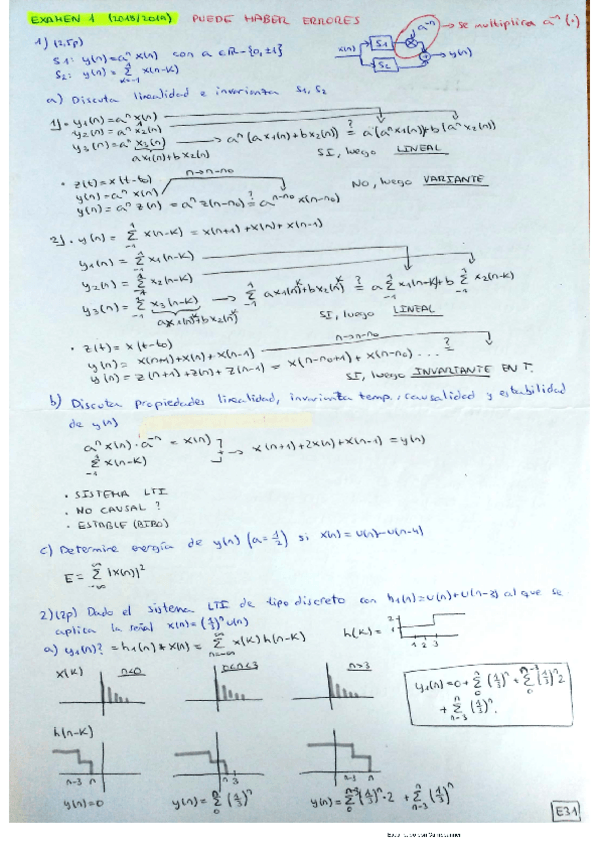 EXAMEN 1 (2018/2019) PUEDE HABER ERRORES
a⁻ⁿ → se multiplica a⁻ⁿ(·)
1) (2,5p)
S1: y(n)=aⁿ x(n) con a ∈ ℝ-{0,±1}
S2: y(n)= Σ x(n-k)
x(n) S1 S2 y(n)
a) Discuta linealidad e invarianza S1, S2
1). y1(n)=aⁿ x(n)
y2(n)=aⁿ x2(n)
y3(n)=aⁿ x3(n) → aⁿ(ax1(n)+bx2(n)) =? a(aⁿx1(n))+b(aⁿx2(n))
ax1(n)+bx2(n) SI, luego LINEAL
· z(t)=x(t-t0) n→n-n0
y(n)=aⁿ x(n) NO, luego VARIANTE
y(n)=aⁿ z(n) = aⁿ z(n-n0) =? aⁿ⁻ⁿ⁰ x(n-n0)
2). y(n) = Σ x(n-k) = x(n+1)+x(n)+x(n-1)
y1(n)= Σ x1(n-k)
y2(n)= Σ x2(n-k)
y3(n)= Σ x3(n-k) → Σ ax1(n)+bx2(n) =? a Σ x1(n-k)+b Σ x2(n-k)
ax1(n)+bx2(n) SI, luego LINEAL
· z(t)=x(t-t0) n→n-n0
y(n)= x(n+1)+x(n)+x(n-1)
y(n)= z(n+1)+z(n)+z(n-1) = x(n-n0+1)+x(n-n0)... =?
SI, luego INVARIANTE EN T.
b) Discuta propiedades linealidad, invarianza temp., causalidad y estabilidad
de y(n)
aⁿ x(n)·a⁻ⁿ = x(n)
Σ x(n-k) → x(n+1)+2x(n)+x(n-1)=y(n)
· SISTEMA LTI
· NO CAUSAL ?
· ESTABLE (BIBO)
c) Determine energía de y(n) (a=1/2) si x(n)=u(n)-u(n-4)
E= Σ |x(n)|²
2) (2p) Dado el sistema LTI de tipo discreto con h1(n)=u(n)+u(n-3) al que se
aplica la señal x(n)=(1/3)ⁿ u(n)
a) y1(n)? = h1(n)*x(n) = Σ x(k)h(n-k) h(k)= 2 1 1 2 3
x(k) n<0 0<n<3 n>3
y1(n)=0+ Σ (1/3)ⁿ + Σ (1/3)ⁿ2
+ Σ (1/3)ⁿ.
h(n-k)
n-3 n n-3 n-3 n
y(n)=0 y(n)= Σ (1/3)ⁿ y(n)= Σ (1/3)ⁿ·2 + Σ (1/3)ⁿ
E31